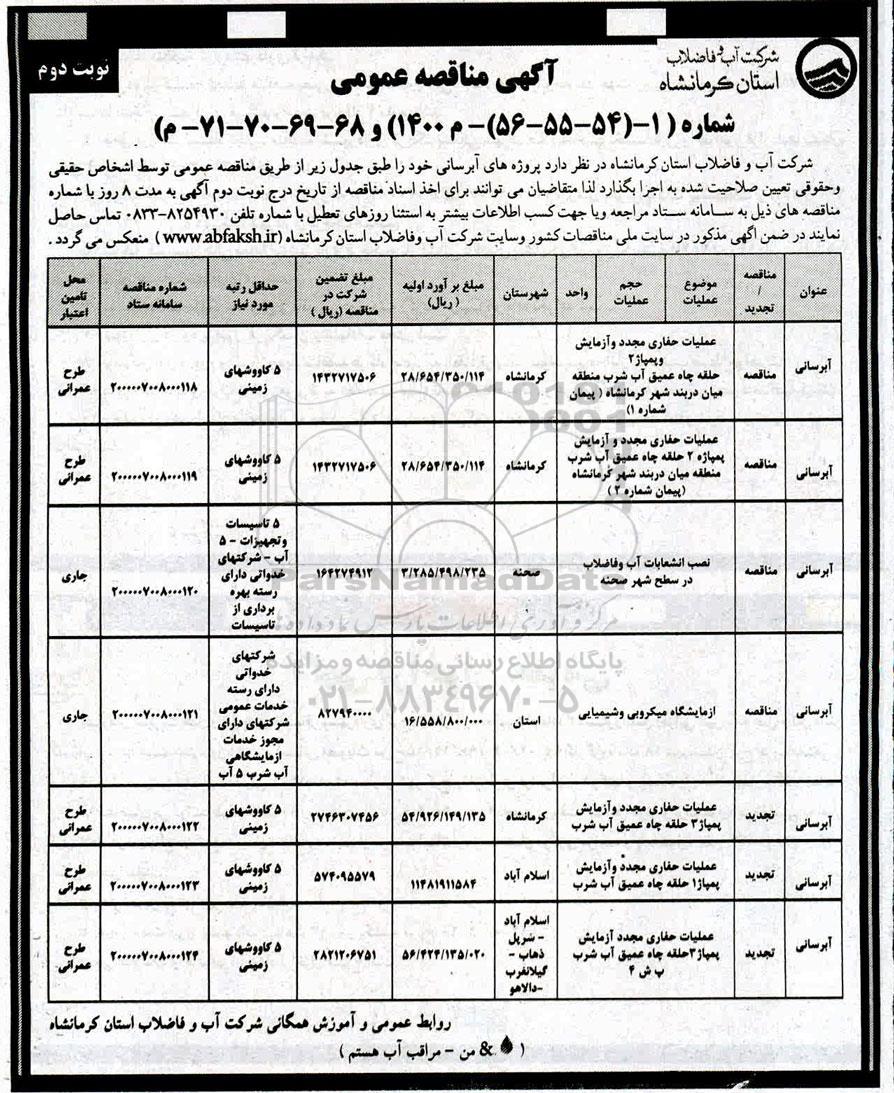 شرکت آب و فاضلاب
استان کرمانشاه
نوبت دوم
آگهی مناقصه عمومی
شماره ( ۱-(۵۴-۵۵-۵۶)- م ۱۴۰۰) و ۶۸-۶۹-۷۰-۷۱- م)
شرکت آب و فاضلاب استان کرمانشاه در نظر دارد پروژه های آبرسانی خود را طبق جدول زیر از طریق مناقصه عمومی توسط اشخاص حقیقی
وحقوقی تعیین صلاحیت شده به اجرا بگذارد لذا متقاضیان می توانند برای اخذ اسناد مناقصه از تاریخ درج نوبت دوم آگهی به مدت ۸ روز با شماره
مناقصه های ذیل به سامانه ستاد مراجعه ویا جهت کسب اطلاعات بیشتر به استثنا روزهای تعطیل با شماره تلفن ۸۲۵۴۹۳۰-۰۸۳۳ تماس حاصل
نمایند در ضمن اگهی مذکور در سایت ملی مناقصات کشور وسایت شرکت آب وفاضلاب استان کرمانشاه (www.abfaksh.ir ) منعکس می گردد .
عنوان | مناقصه / تجدید | موضوع عملیات | حجم عملیات | واحد | شهرستان | مبلغ بر آورد اولیه ( ریال) | مبلغ تضمین شرکت در مناقصه (ریال ) | حداقل رتبه مورد نیاز | شماره مناقصه سامانه ستاد | محل تامین اعتبار
آبرسانی | مناقصه | عملیات حفاری مجدد وآزمایش وپمپاژ۲ حلقه چاه عمیق آب شرب منطقه میان دربند شهر کرمانشاه ( پیمان شماره ۱) | کرمانشاه | ۲۸/۶۵۴/۳۵۰/۱۱۴ | ۱۴۳۲۷۱۷۵۰۶ | ۵ کاووشهای زمینی | ۲۰۰۰۰۰۷۰۰۸۰۰۰۱۱۸ | طرح عمرانی
آبرسانی | مناقصه | عملیات حفاری مجدد و آزمایش پمپاژه ۲ حلقه چاه عمیق آب شرب منطقه میان دربند شهر کرمانشاه (پیمان شماره ۲ ) | کرمانشاه | ۲۸/۶۵۴/۳۵۰/۱۱۴ | ۱۴۳۲۷۱۷۵۰۶ | ۵ کاووشهای زمینی | ۲۰۰۰۰۰۷۰۰۸۰۰۰۱۱۹ | طرح عمرانی
آبرسانی | مناقصه | نصب انشعابات آب وفاضلاب در سطح شهر صحنه | صحنه | ۳/۲۸۵/۴۹۸/۲۳۵ | ۱۶۴۲۷۴۹۱۲ | ۵ تاسیسات وتجهیزات - ۵ آب - شرکتهای خدواتی دارای رسته بهره برداری از تاسیسات | ۲۰۰۰۰۰۷۰۰۸۰۰۰۱۲۰ | جاری
آبرسانی | مناقصه | ازمایشگاه میکروبی وشیمیایی | استان | ۱۶/۵۵۸/۸۰۰/۰۰۰ | ۸۲۷۹۴۰۰۰۰ | شرکتهای خدواتی دارای رسته خدمات عمومی شرکتهای دارای مجوز خدمات ازمایشگاهی آب شرب ۵ آب | ۲۰۰۰۰۰۷۰۰۸۰۰۰۱۲۱ | جاری
آبرسانی | تجدید | عملیات حفاری مجدد وآزمایش پمپاژ۳ حلقه چاه عمیق آب شرب | کرمانشاه | ۵۴/۹۲۶/۱۴۹/۱۳۵ | ۲۷۴۶۳۰۷۴۵۶ | ۵ کاووشهای زمینی | ۲۰۰۰۰۰۷۰۰۸۰۰۰۱۲۲ | طرح عمرانی
آبرسانی | تجدید | عملیات حفاری مجدد وآزمایش پمپاژ۱ حلقه چاه عمیق آب شرب | اسلام آباد | ۱۱۴۸۱۹۱۱۵۸۴ | ۵۷۴۰۹۵۵۷۹ | ۵ کاووشهای زمینی | ۲۰۰۰۰۰۷۰۰۸۰۰۰۱۲۳ | طرح عمرانی
آبرسانی | تجدید | عملیات حفاری مجدد آزمایش پمپاژ۳حلقه چاه عمیق آب شرب پ ش ۴ | اسلام آباد - سرپل ذهاب - گیلانغرب -دالاهو | ۵۶/۴۲۴/۱۳۵/۰۲۰ | ۲۸۲۱۲۰۶۷۵۱ | ۵ کاووشهای زمینی | ۲۰۰۰۰۰۷۰۰۸۰۰۰۱۲۴ | طرح عمرانی
ParsNamadData
مرکز و آوری اطلاعات پارس نماد داده ها
پایگاه اطلاع رسانی مناقصه و مزایده
۰۲۱-۸۸۳۴۹۶۷۰-۵
روابط عمومی و آموزش همگانی شرکت آب و فاضلاب استان کرمانشاه
( & من - مراقب آب هستم )